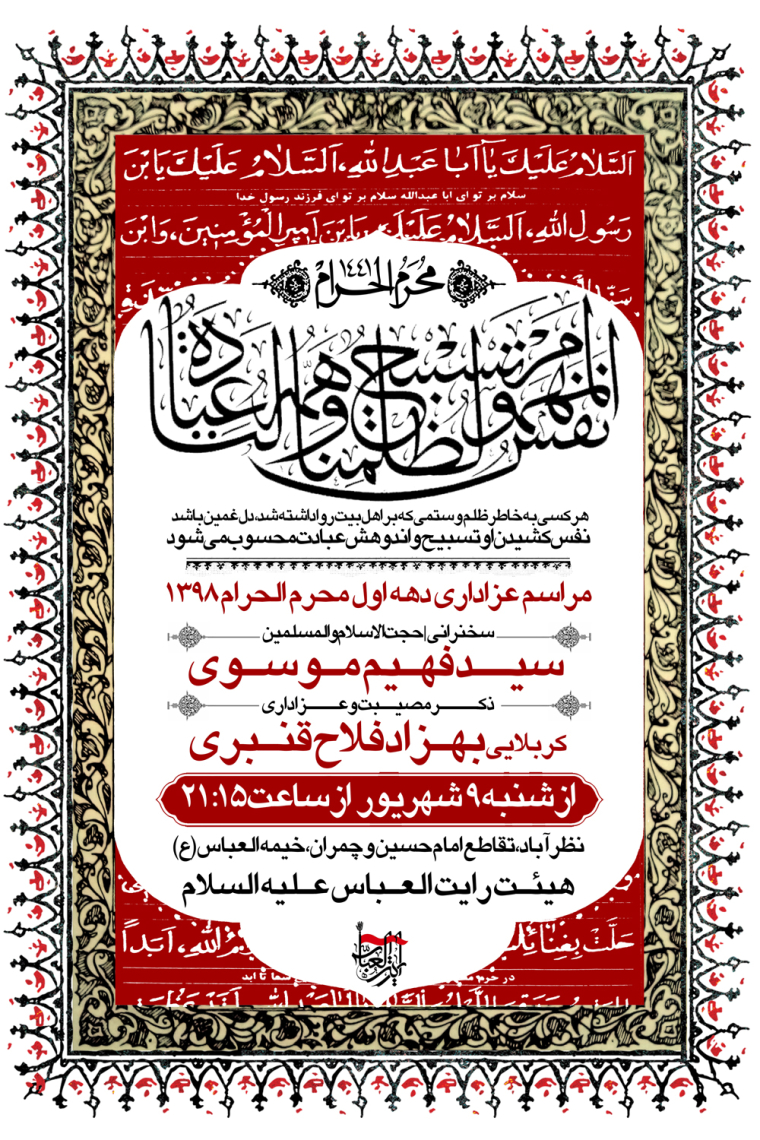 اَلسَّلامُ عَلَيْكَ يا اَبا عَبْدِاللهِ، اَلسَّلامُ عَلَيْكَ يَابْنَ
سلام بر تو ای ابا عبدالله سلام بر تو ای فرزند رسول خدا
رَسُولِ اللهِ، اَلسَّلامُ عَلَيْكَ يَابْنَ اَميرِالْمُؤْمِنينَ، وَابْنَ
محرم الحرام ۱۴۴۱
نفس المهموم لظلمنا تسبیح و همه لنا عبادة
هر کسی به خاطر ظلم و ستمی که بر اهل بیت روا داشته شد، دل غمین باشد
نفس کشیدن او تسبیح و اندوهش عبادت محسوب می شود
مراسم عزاداری دهه اول محرم الحرام ۱۳۹۸
سخنرانی | حجت الاسلام والمسلمین
سید فهیم موسوی
ذکر مصیبت و عزاداری
کربلایی بهزاد فلاح قنبری
از شنبه ۹ شهریور از ساعت ۲۱:۱۵
نظرآباد، تقاطع امام حسین و چمران، خیمه العباس (ع)
هیئت رایت العباس علیه السلام
حَلَّتْ بِفِنائِكَ
اللهِ، اَبَداً
رایت العباس
در حرم
تا ابد